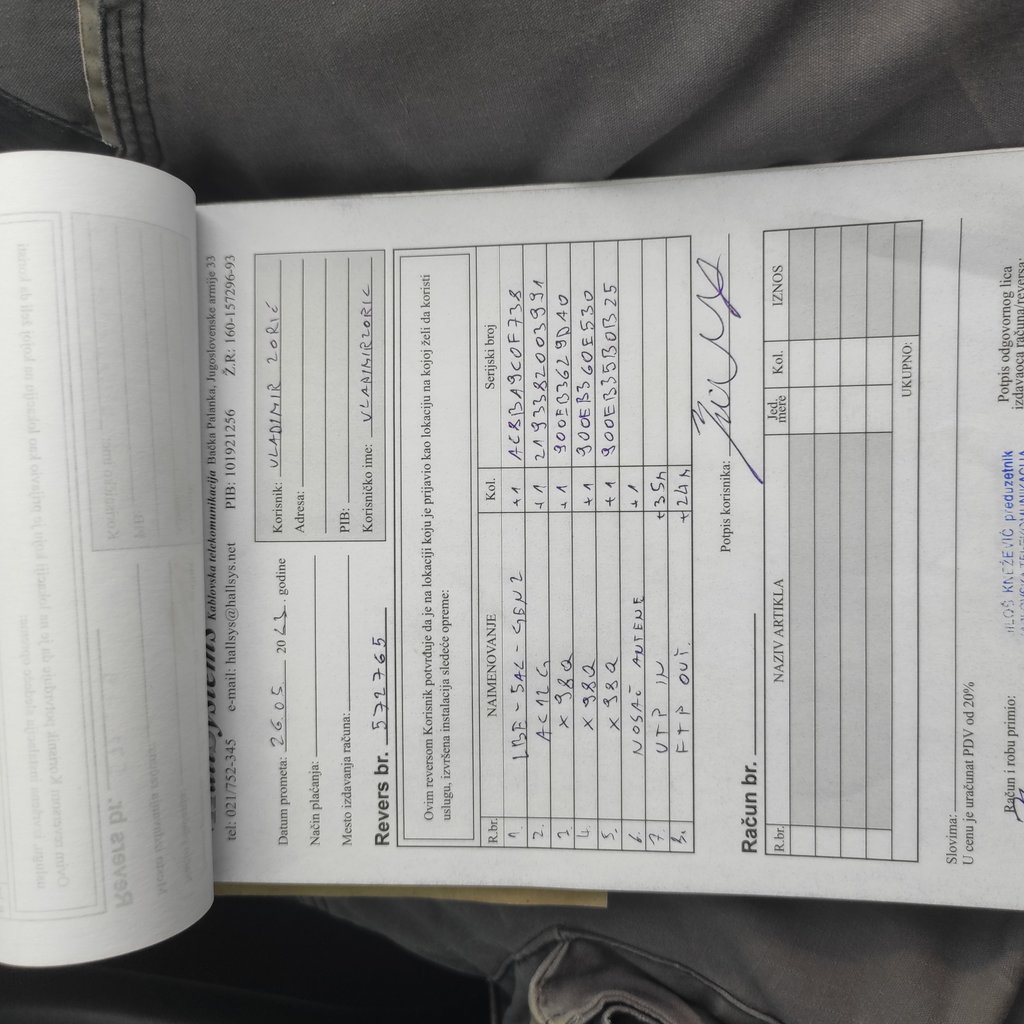 Kablovska telekomunikacija Bačka Palanka, Jugoslovenske armije 33
tel: 021/752-345 e-mail: hallsys@hallsys.net PIB: 101921256 Ž.R.: 160-157296-93
Datum prometa: 26.05 2023. godine
Način plaćanja:
Mesto izdavanja računa:
Korisnik: VLADIMIR ZORIĆ
Adresa:
PIB:
Korisničko ime: VLADIMIRZORIC
Revers br. 572765
Ovim reversom Korisnik potvrđuje da je na lokaciji koju je prijavio kao lokaciju na kojoj želi da koristi
uslugu, izvršena instalacija sledeće opreme:
R.br. NAIMENOVANJE Kol. Serijski broj
1. LBE-5AC-GEN2 +1 AC8BA9C0F738
2. AC12G +1 2193382003991
3. X98Q +1 900EB3629D40
4. X98Q +1 900EB360E530
5. X98Q +1 900EB35B0B25
6. NOSAČ ANTENE +1
7. UTP IN +35m
8. FTP OUT. +24m
Potpis korisnika:
Račun br.
R.br. NAZIV ARTIKLA Jed. mere Kol. IZNOS
UKUPNO:
Slovima:
U cenu je uračunat PDV od 20%
Račun i robu primio:
Potpis odgovornog lica
izdavaoca računa/reversa:
KNEŽEVIĆ preduzetnik